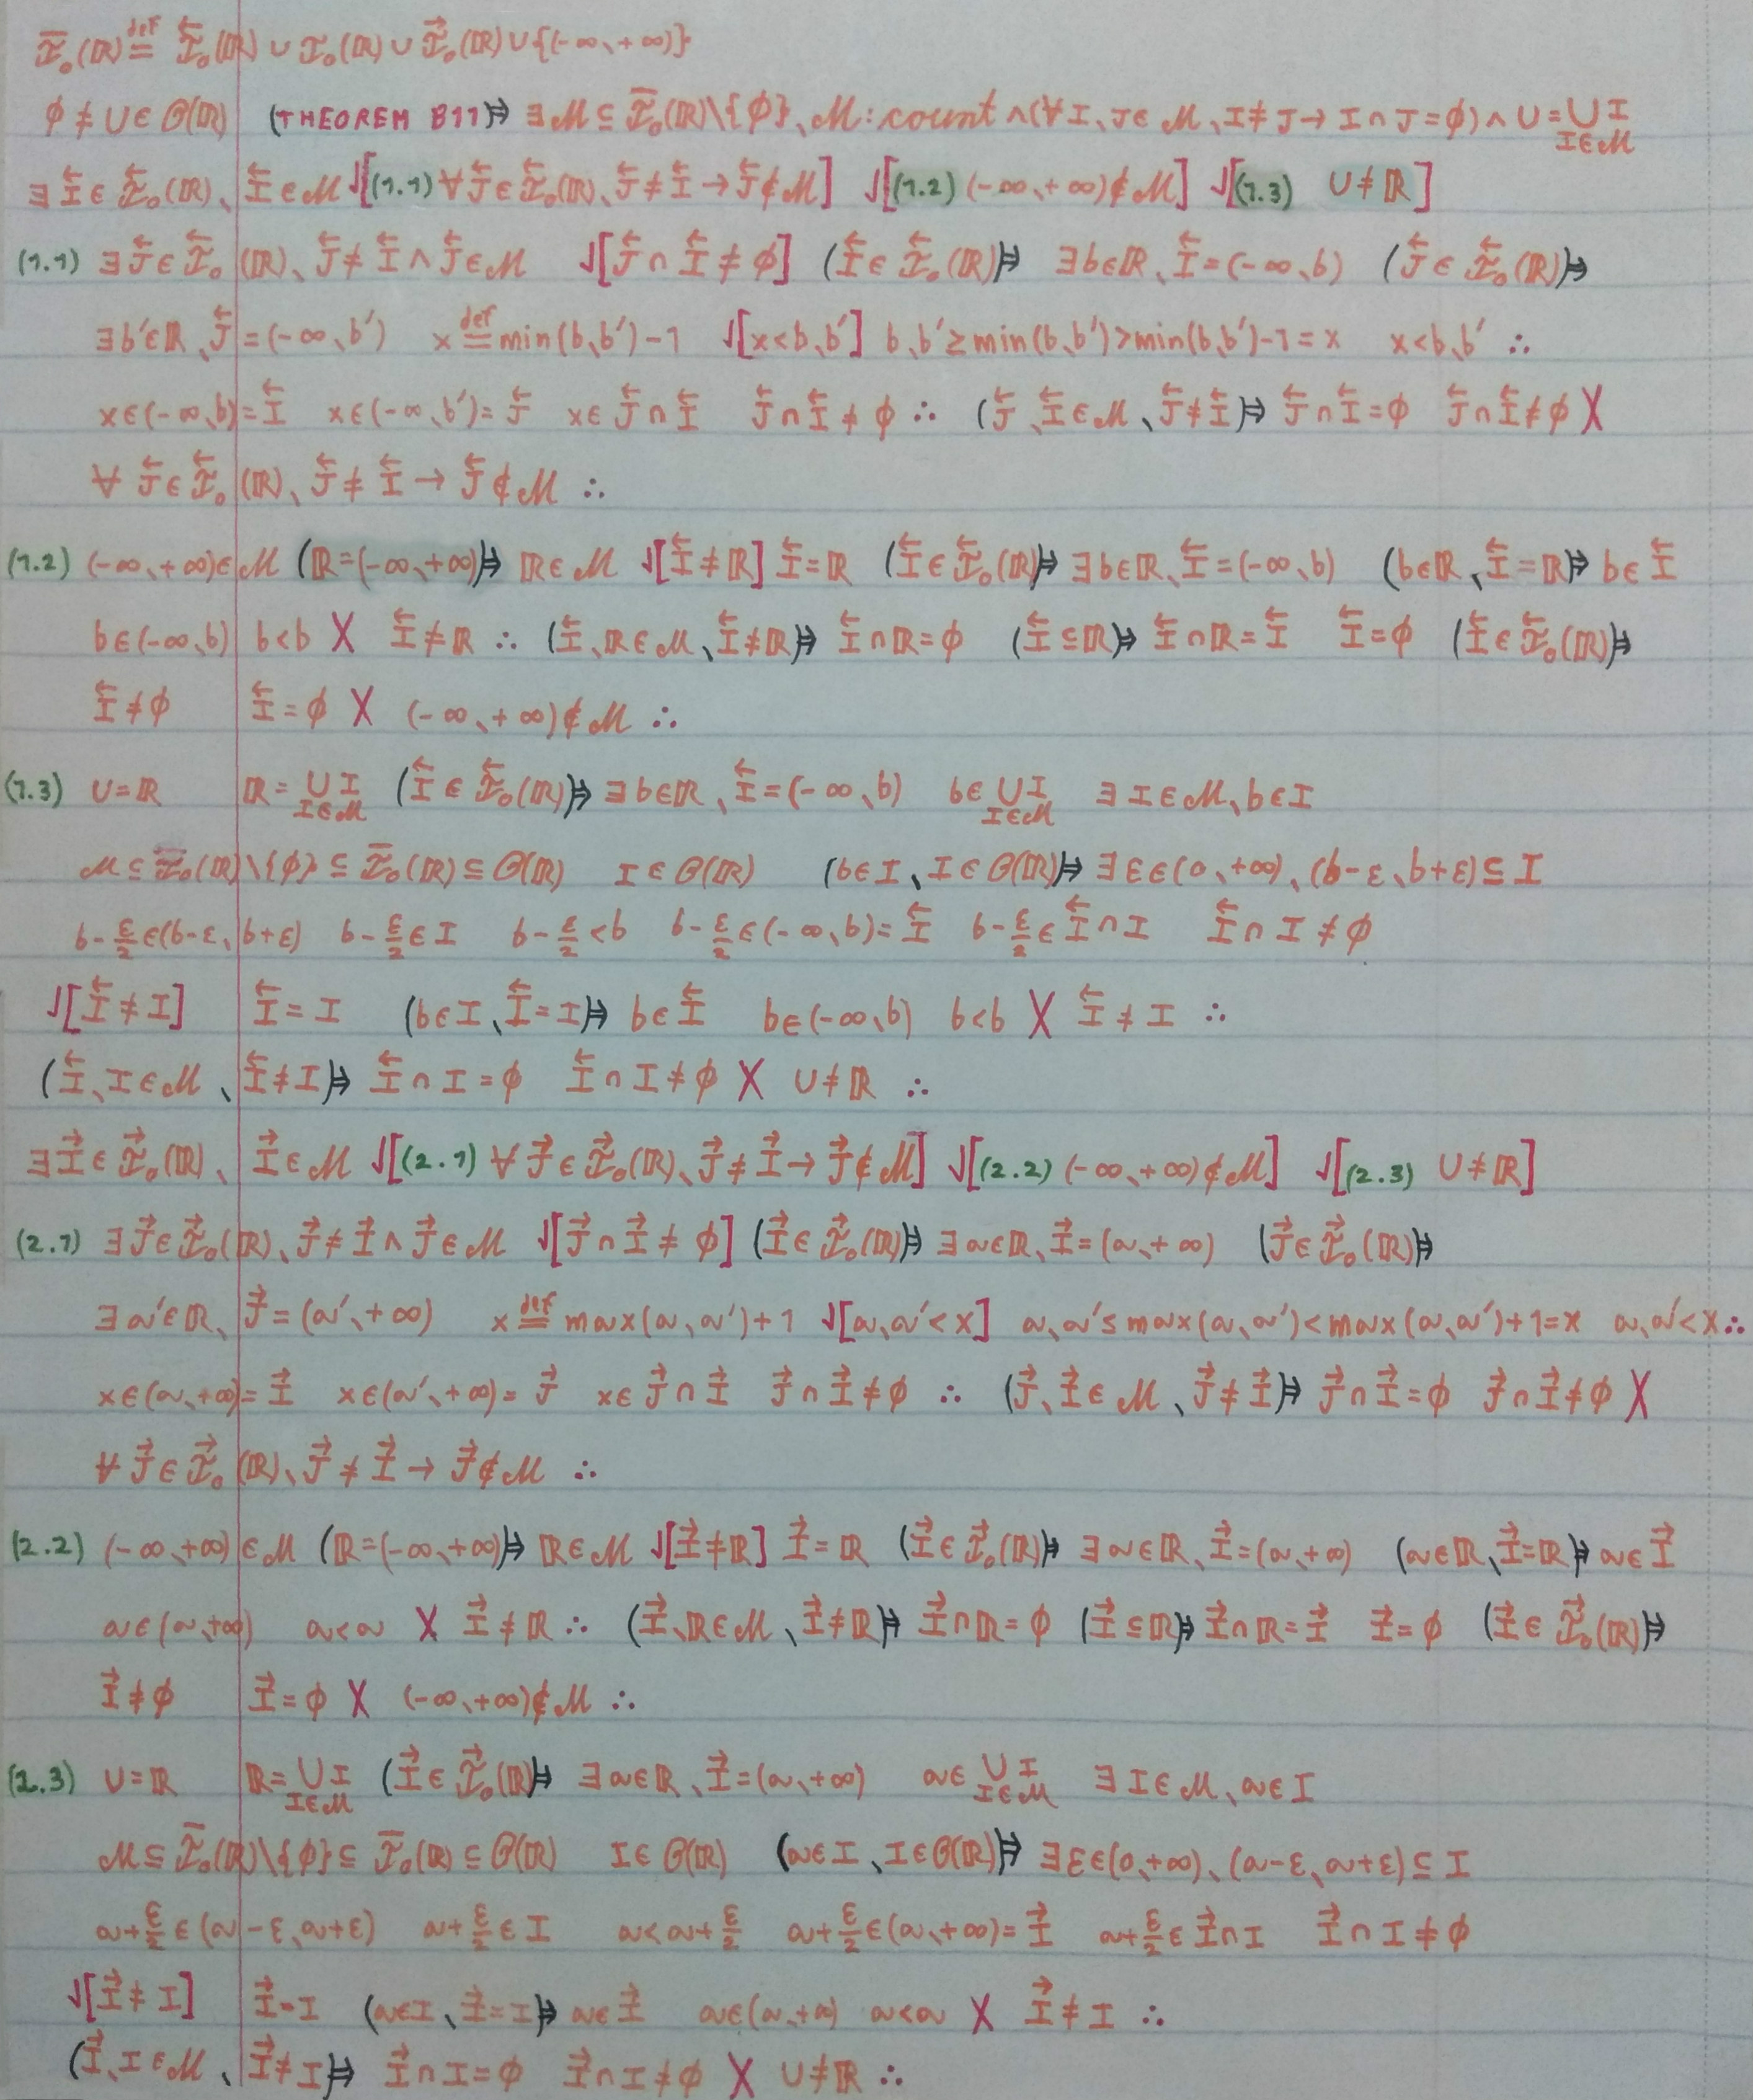 ℐ̅ₒ(ℝ) ≝ ℐ⃖ₒ(ℝ) ∪ ℐₒ(ℝ) ∪ ℐ⃗ₒ(ℝ) ∪ {(-∞、+∞)}
ϕ ≠ U ∈ 𝒪(ℝ) (THEOREM B11)⇒ ∃ℳ ⊆ ℐ̅ₒ(ℝ)\{ϕ}、ℳ : count ∧ (∀I、J ∈ ℳ、I ≠ J → I ∩ J = ϕ) ∧ U = ∪_{I∈ℳ} I
∃I⃖ ∈ ℐ⃖ₒ(ℝ)、I⃖ ∈ ℳ √[(1.1) ∀J⃖ ∈ ℐ⃖ₒ(ℝ)、J⃖ ≠ I⃖ → J⃖ ∉ ℳ] √[(1.2) (-∞、+∞) ∉ ℳ] √[(1.3) U ≠ ℝ]
(1.1) ∃J⃖ ∈ ℐ⃖ₒ(ℝ)、J⃖ ≠ I⃖ ∧ J⃖ ∈ ℳ √[J⃖ ∩ I⃖ ≠ ϕ] (I⃖ ∈ ℐ⃖ₒ(ℝ))⇒ ∃b∈ℝ、I⃖ = (-∞、b) (J⃖ ∈ ℐ⃖ₒ(ℝ))⇒
∃b'∈ℝ、J⃖ = (-∞、b') x ≝ min(b、b')-1 √[x<b、b'] b、b' ≥ min(b、b') > min(b、b')-1 = x x<b、b' ∴
x∈(-∞、b) = I⃖ x∈(-∞、b') = J⃖ x∈ J⃖ ∩ I⃖ J⃖ ∩ I⃖ ≠ ϕ ∴ (J⃖、I⃖ ∈ ℳ、J⃖ ≠ I⃖)⇒ J⃖ ∩ I⃖ = ϕ J⃖ ∩ I⃖ ≠ ϕ X
∀ J⃖ ∈ ℐ⃖ₒ(ℝ)、J⃖ ≠ I⃖ → J⃖ ∉ ℳ ∴
(1.2) (-∞、+∞) ∈ ℳ (ℝ = (-∞、+∞))⇒ ℝ ∈ ℳ √[I⃖ ≠ ℝ] I⃖ = ℝ (I⃖ ∈ ℐ⃖ₒ(ℝ))⇒ ∃b∈ℝ、I⃖ = (-∞、b) (b∈ℝ、I⃖ = ℝ)⇒ b∈ I⃖
b∈(-∞、b) b<b X I⃖ ≠ ℝ ∴ (I⃖、ℝ ∈ ℳ、I⃖ ≠ ℝ)⇒ I⃖ ∩ ℝ = ϕ (I⃖ ⊆ ℝ)⇒ I⃖ ∩ ℝ = I⃖ I⃖ = ϕ (I⃖ ∈ ℐ⃖ₒ(ℝ))⇒
I⃖ ≠ ϕ I⃖ = ϕ X (-∞、+∞) ∉ ℳ ∴
(1.3) U = ℝ ℝ = ∪_{I∈ℳ} I (I⃖ ∈ ℐ⃖ₒ(ℝ))⇒ ∃b∈ℝ、I⃖ = (-∞、b) b∈ ∪_{I∈ℳ} I ∃ I ∈ ℳ、b∈I
ℳ ⊆ ℐ̅ₒ(ℝ)\{ϕ} ⊆ ℐ̅ₒ(ℝ) ⊆ 𝒪(ℝ) I ∈ 𝒪(ℝ) (b∈I、I ∈ 𝒪(ℝ))⇒ ∃ε∈(0、+∞)、(b-ε、b+ε) ⊆ I
b-ε/2 ∈ (b-ε、b+ε) b-ε/2 ∈ I b-ε/2 < b b-ε/2 ∈ (-∞、b) = I⃖ b-ε/2 ∈ I⃖ ∩ I I⃖ ∩ I ≠ ϕ
√[I⃖ ≠ I] I⃖ = I (b∈I、I⃖ = I)⇒ b∈ I⃖ b∈(-∞、b) b<b X I⃖ ≠ I ∴
(I⃖、I ∈ ℳ、I⃖ ≠ I)⇒ I⃖ ∩ I = ϕ I⃖ ∩ I ≠ ϕ X U ≠ ℝ ∴
∃I⃗ ∈ ℐ⃗ₒ(ℝ)、I⃗ ∈ ℳ √[(2.1) ∀ J⃗ ∈ ℐ⃗ₒ(ℝ)、J⃗ ≠ I⃗ → J⃗ ∉ ℳ] √[(2.2) (-∞、+∞) ∉ ℳ] √[(2.3) U ≠ ℝ]
(2.1) ∃J⃗ ∈ ℐ⃗ₒ(ℝ)、J⃗ ≠ I⃗ ∧ J⃗ ∈ ℳ √[J⃗ ∩ I⃗ ≠ ϕ] (I⃗ ∈ ℐ⃗ₒ(ℝ))⇒ ∃a∈ℝ、I⃗ = (a、+∞) (J⃗ ∈ ℐ⃗ₒ(ℝ))⇒
∃a'∈ℝ、J⃗ = (a'、+∞) x ≝ max(a、a')+1 √[a、a'<x] a、a' ≤ max(a、a') < max(a、a')+1 = x a、a'<x ∴
x∈(a、+∞) = I⃗ x∈(a'、+∞) = J⃗ x∈ J⃗ ∩ I⃗ J⃗ ∩ I⃗ ≠ ϕ ∴ (J⃗、I⃗ ∈ ℳ、J⃗ ≠ I⃗)⇒ J⃗ ∩ I⃗ = ϕ J⃗ ∩ I⃗ ≠ ϕ X
∀ J⃗ ∈ ℐ⃗ₒ(ℝ)、J⃗ ≠ I⃗ → J⃗ ∉ ℳ ∴
(2.2) (-∞、+∞) ∈ ℳ (ℝ = (-∞、+∞))⇒ ℝ ∈ ℳ √[I⃗ ≠ ℝ] I⃗ = ℝ (I⃗ ∈ ℐ⃗ₒ(ℝ))⇒ ∃a∈ℝ、I⃗ = (a、+∞) (a∈ℝ、I⃗ = ℝ)⇒ a∈ I⃗
a∈(a、+∞) a<a X I⃗ ≠ ℝ ∴ (I⃗、ℝ ∈ ℳ、I⃗ ≠ ℝ)⇒ I⃗ ∩ ℝ = ϕ (I⃗ ⊆ ℝ)⇒ I⃗ ∩ ℝ = I⃗ I⃗ = ϕ (I⃗ ∈ ℐ⃗ₒ(ℝ))⇒
I⃗ ≠ ϕ I⃗ = ϕ X (-∞、+∞) ∉ ℳ ∴
(2.3) U = ℝ ℝ = ∪_{I∈ℳ} I (I⃗ ∈ ℐ⃗ₒ(ℝ))⇒ ∃a∈ℝ、I⃗ = (a、+∞) a∈ ∪_{I∈ℳ} I ∃ I ∈ ℳ、a∈I
ℳ ⊆ ℐ̅ₒ(ℝ)\{ϕ} ⊆ ℐ̅ₒ(ℝ) ⊆ 𝒪(ℝ) I ∈ 𝒪(ℝ) (a∈I、I ∈ 𝒪(ℝ))⇒ ∃ε∈(0、+∞)、(a-ε、a+ε) ⊆ I
a+ε/2 ∈ (a-ε、a+ε) a+ε/2 ∈ I a < a+ε/2 a+ε/2 ∈ (a、+∞) = I⃗ a+ε/2 ∈ I⃗ ∩ I I⃗ ∩ I ≠ ϕ
√[I⃗ ≠ I] I⃗ = I (a∈I、I⃗ = I)⇒ a∈ I⃗ a∈(a、+∞) a<a X I⃗ ≠ I ∴
(I⃗、I ∈ ℳ、I⃗ ≠ I)⇒ I⃗ ∩ I = ϕ I⃗ ∩ I ≠ ϕ X U ≠ ℝ ∴